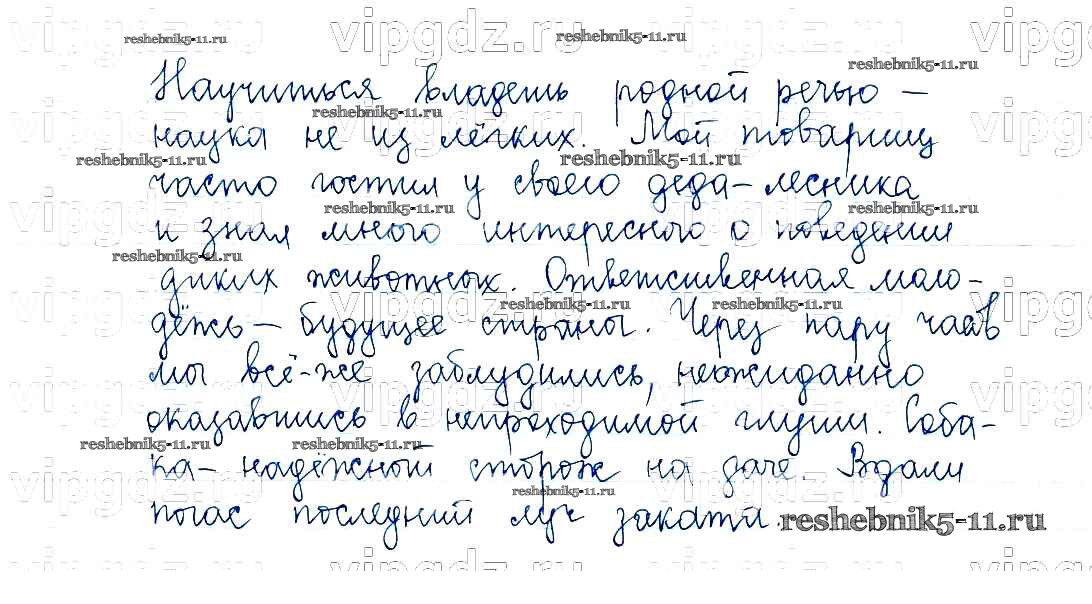 Научиться владеть родной речью –
наука не из лёгких. Мой товарищ
часто гостил у своего деда-лесника
и знал много интересного о поведении
диких животных. Ответственная моло-
дёжь – будущее страны. Через пару часов
мы всё-же заблудились, неожиданно
оказавшись в непроходимой глуши. Соба-
ка – надёжный сторож на даче. Вдали
погас последний луч заката.
vipgdz.ru
reshebnik5-11.ru